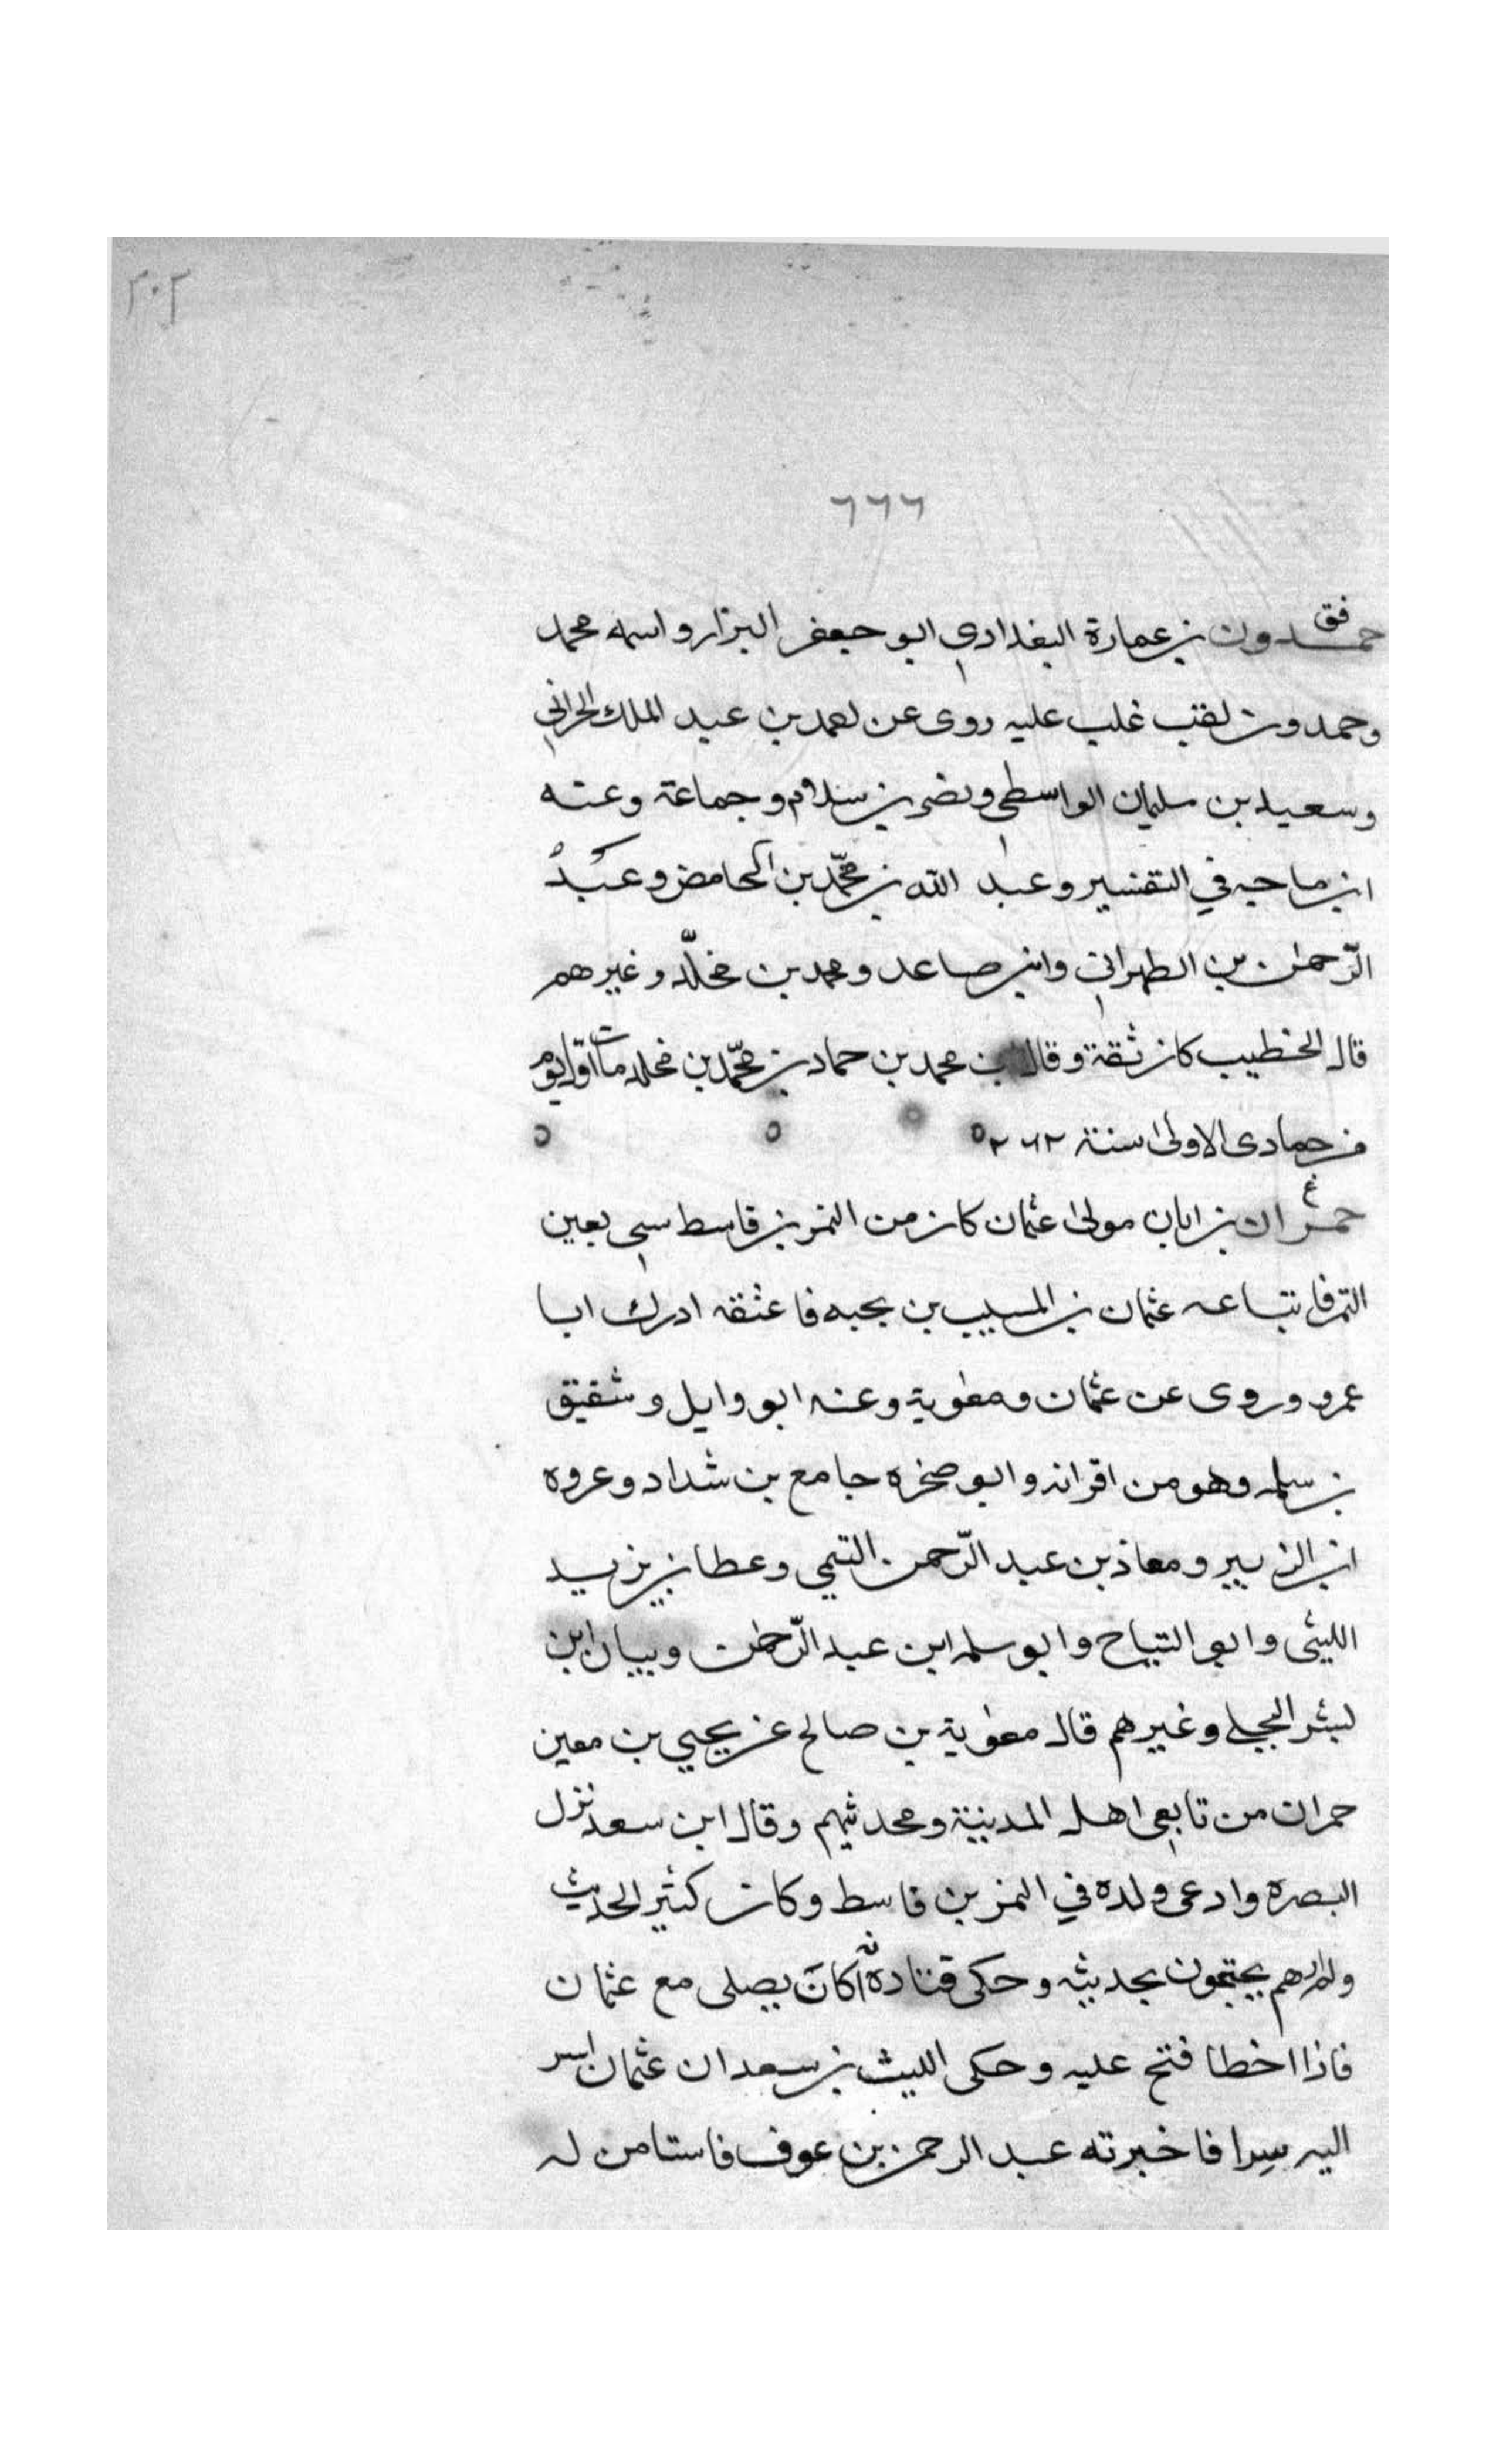 ٢٠٢
٦٦٦
فق
حمدون بن عمارة البغدادي ابو جعفر البزار واسمه محمد
وحمدون لقب غلب عليه روى عن لعمد بن عبد الملك الحراني
وسعيد بن سليمان الواسطي ونصر بن سلام وجماعة وعنه
ابن ماجه في التفسير وعبد الله بن محمّد بن الحامض وعبدُ
الرّحمن بن الطهراني وابن صاعد ومحمد بن مخلّد وغيرهم
قال الخطيب كان ثقة وقال محمد بن حماد بن محمّد بن مخلد مات اول يوم
من جمادى الاولى سنة ٢٦٢ ه
ع
حمران بن ابان مولى عثمان كان من النمر بن قاسط سبي بعين
التمر فابتاعه عثمان بن المسيب بن بجبه فاعتقه ادرك ابا
عمرو وروى عن عثمان ومعوية وعنه ابو وايل وشقيق
بن سلمه وهو من اقرانه وابو صخره جامع بن شداد وعروه
ابن الزبير ومعاذ بن عبد الرّحمن التيمي وعطا بن يزيد
الليثي وابو التياح وابو سلمه ابن عبد الرّحمن وبيان ابن
بشر البجلي وغيرهم قال معوية بن صالح عن يحيي بن معين
حمران من تابعي اهل المدينة ومحدثيهم وقال ابن سعد نزل
البصره وادعى ولده في النمر بن قاسط وكان كثير الحديث
ولم ارهم يحتجون بحديثه وحكى قتادة انّه كانَ يصلى مع عثمان
فاذا اخطا فتح عليه وحكى الليث بن سعد ان عثمان اسر
اليه سِرا فاخبرته عبد الرحمن بن عوف فاستامن له